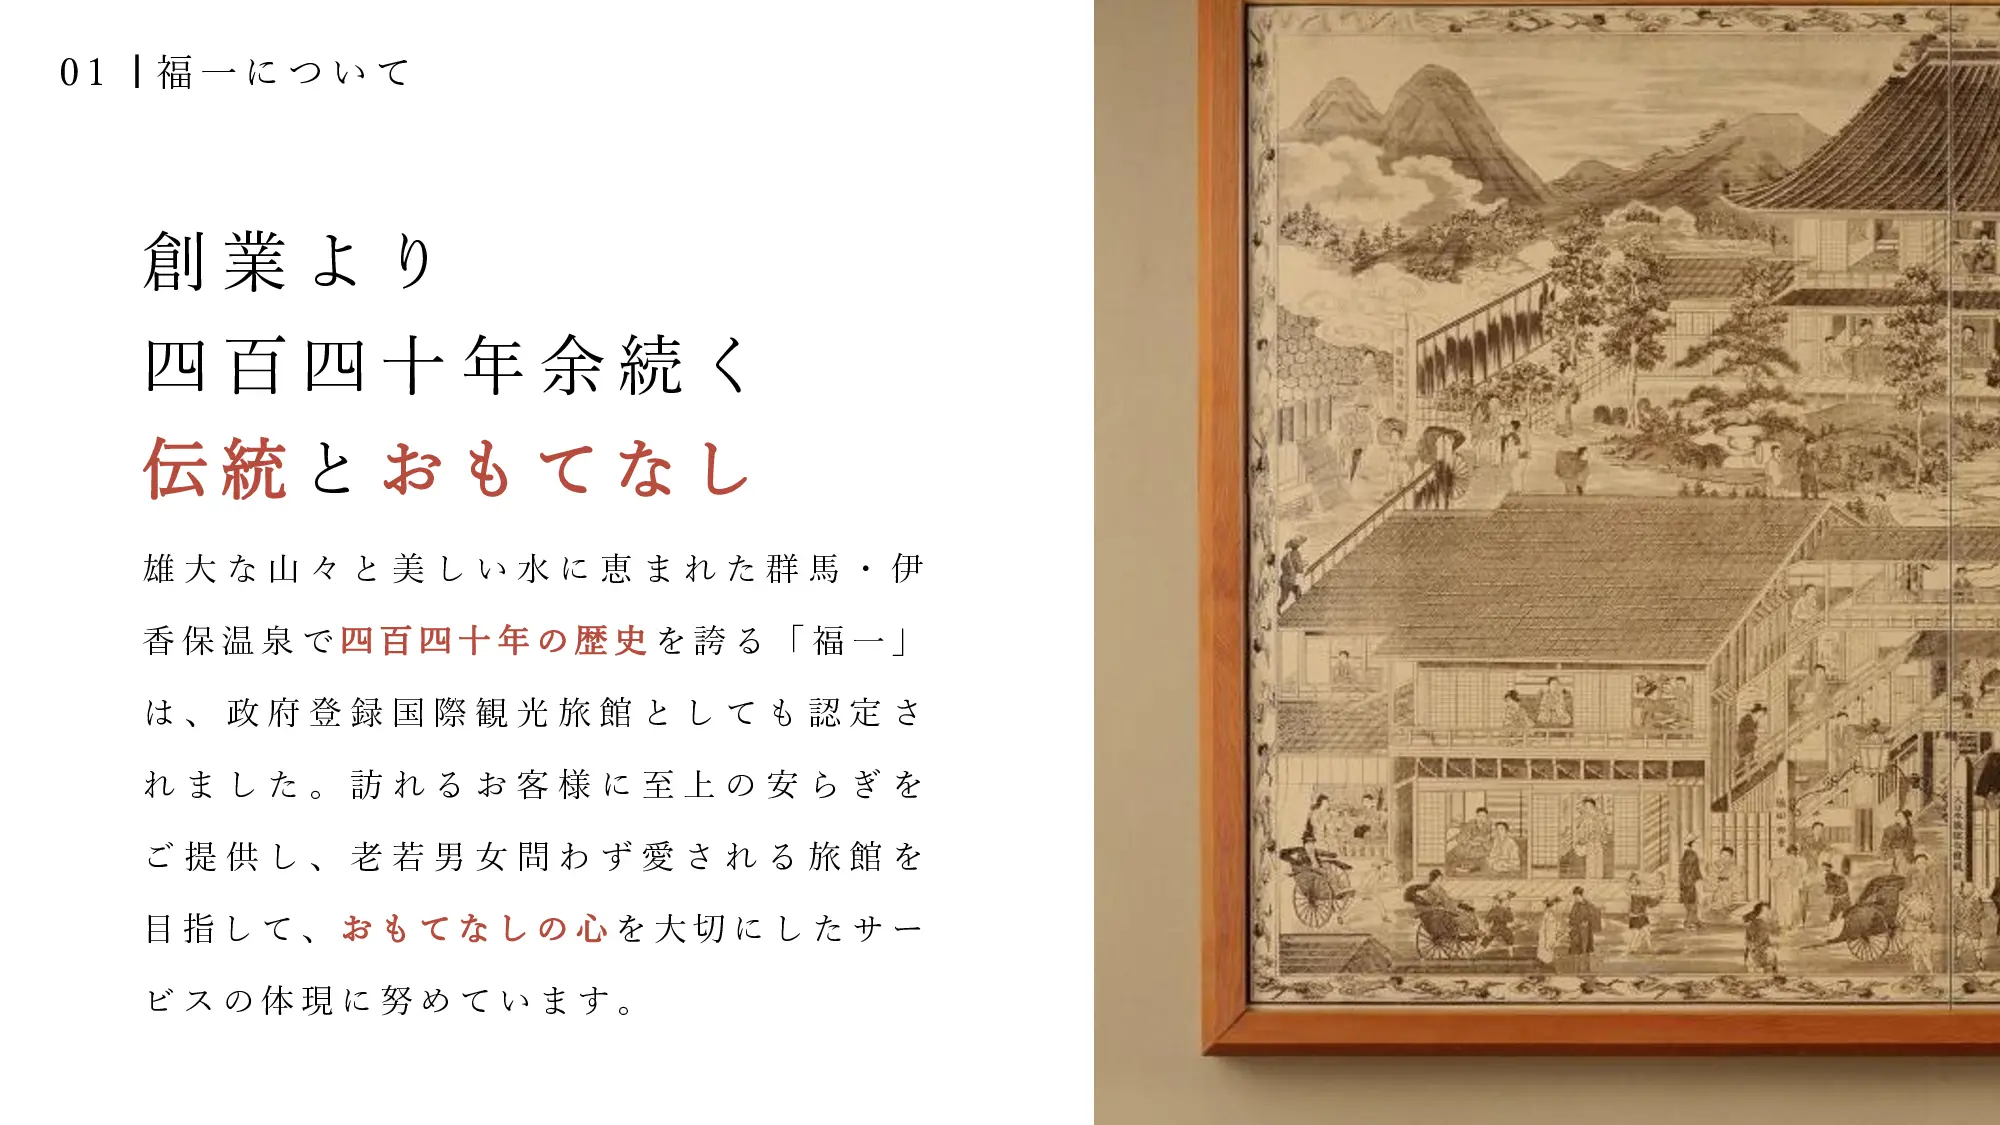 01 |福一について
創業より
四百四十年余続く
伝統とおもてなし
雄大な山々と美しい水に恵まれた群馬・伊
香保温泉で四百四十年の歴史を誇る「福一」
は、政府登録国際観光旅館としても認定さ
れました。訪れるお客様に至上の安らぎを
ご提供し、老若男女問わず愛される旅館を
目指して、おもてなしの心を大切にしたサー
ビスの体現に努めています。